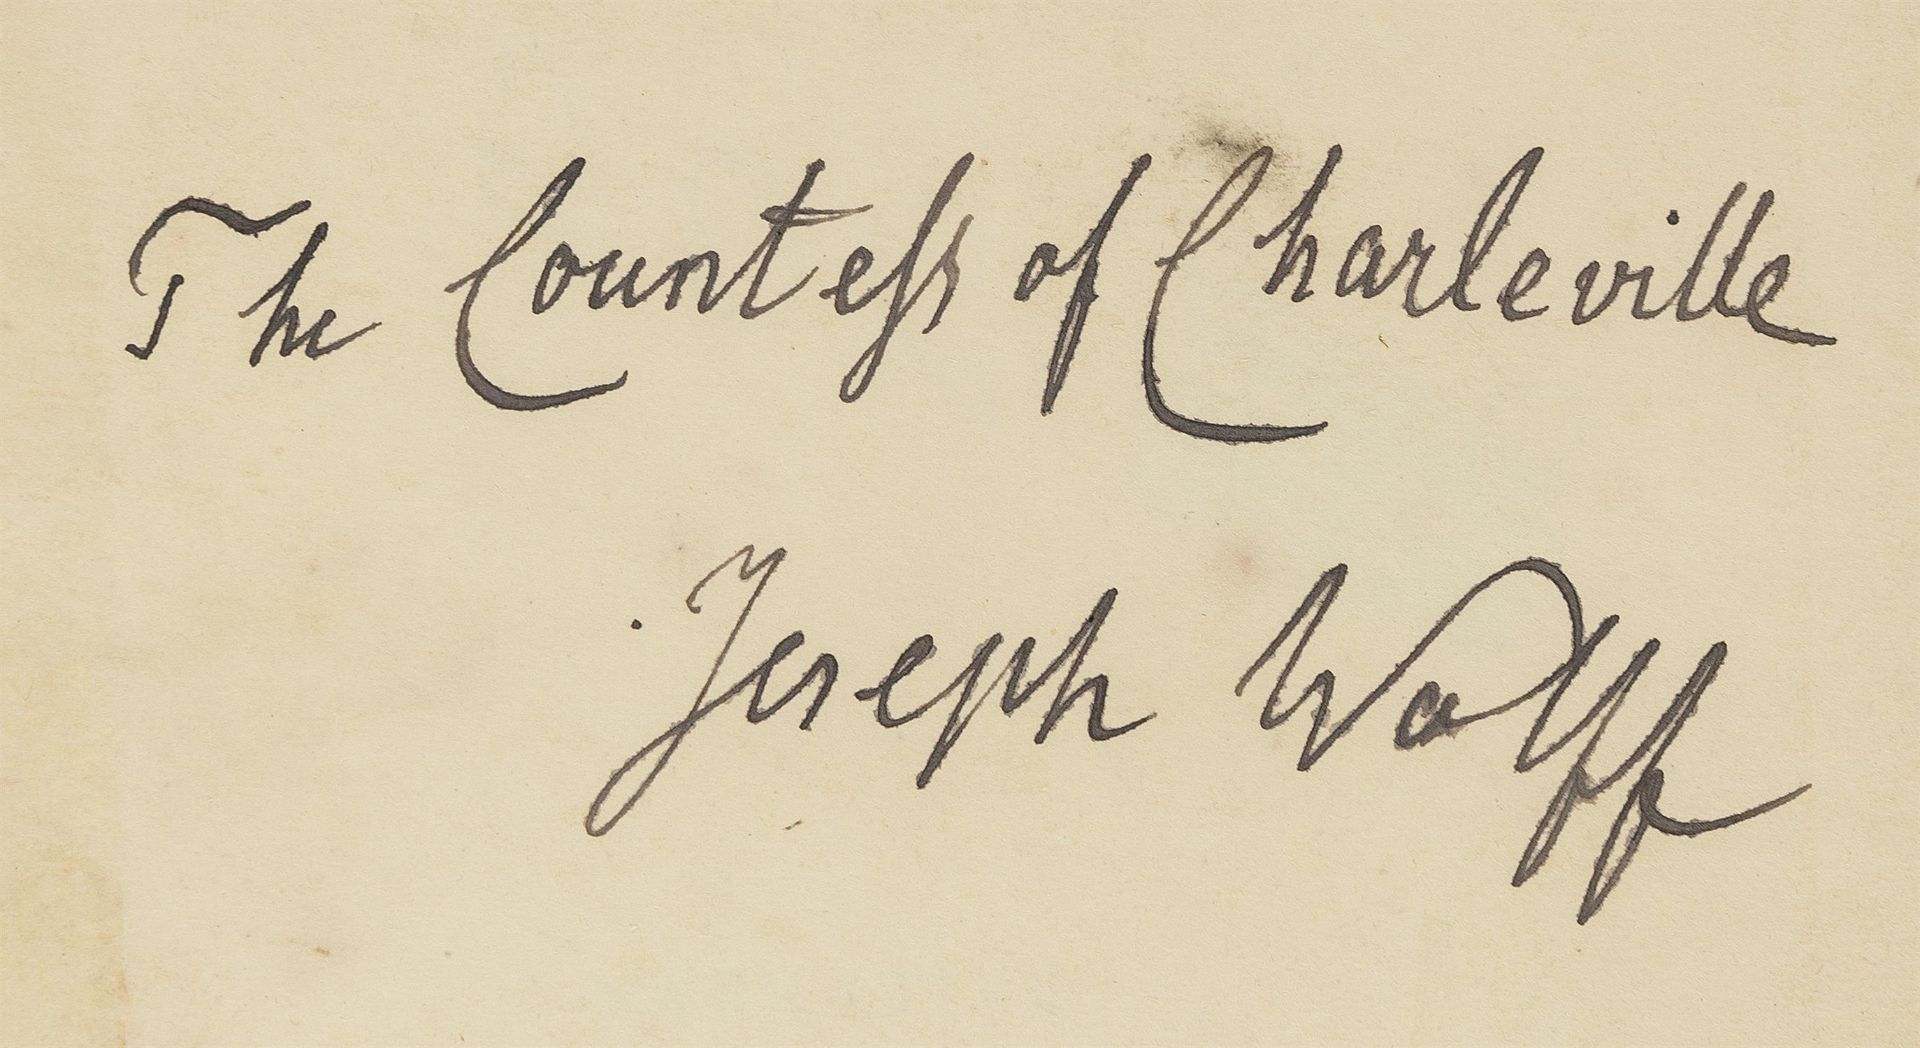 The Countess of Charleville
Joseph Wolff